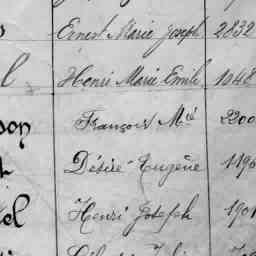 Ernest Marie Joseph 2832
Henri Marie Emile 1048
son François Mie 2200
Désiré Eugène 1196
el Henri Joseph 190